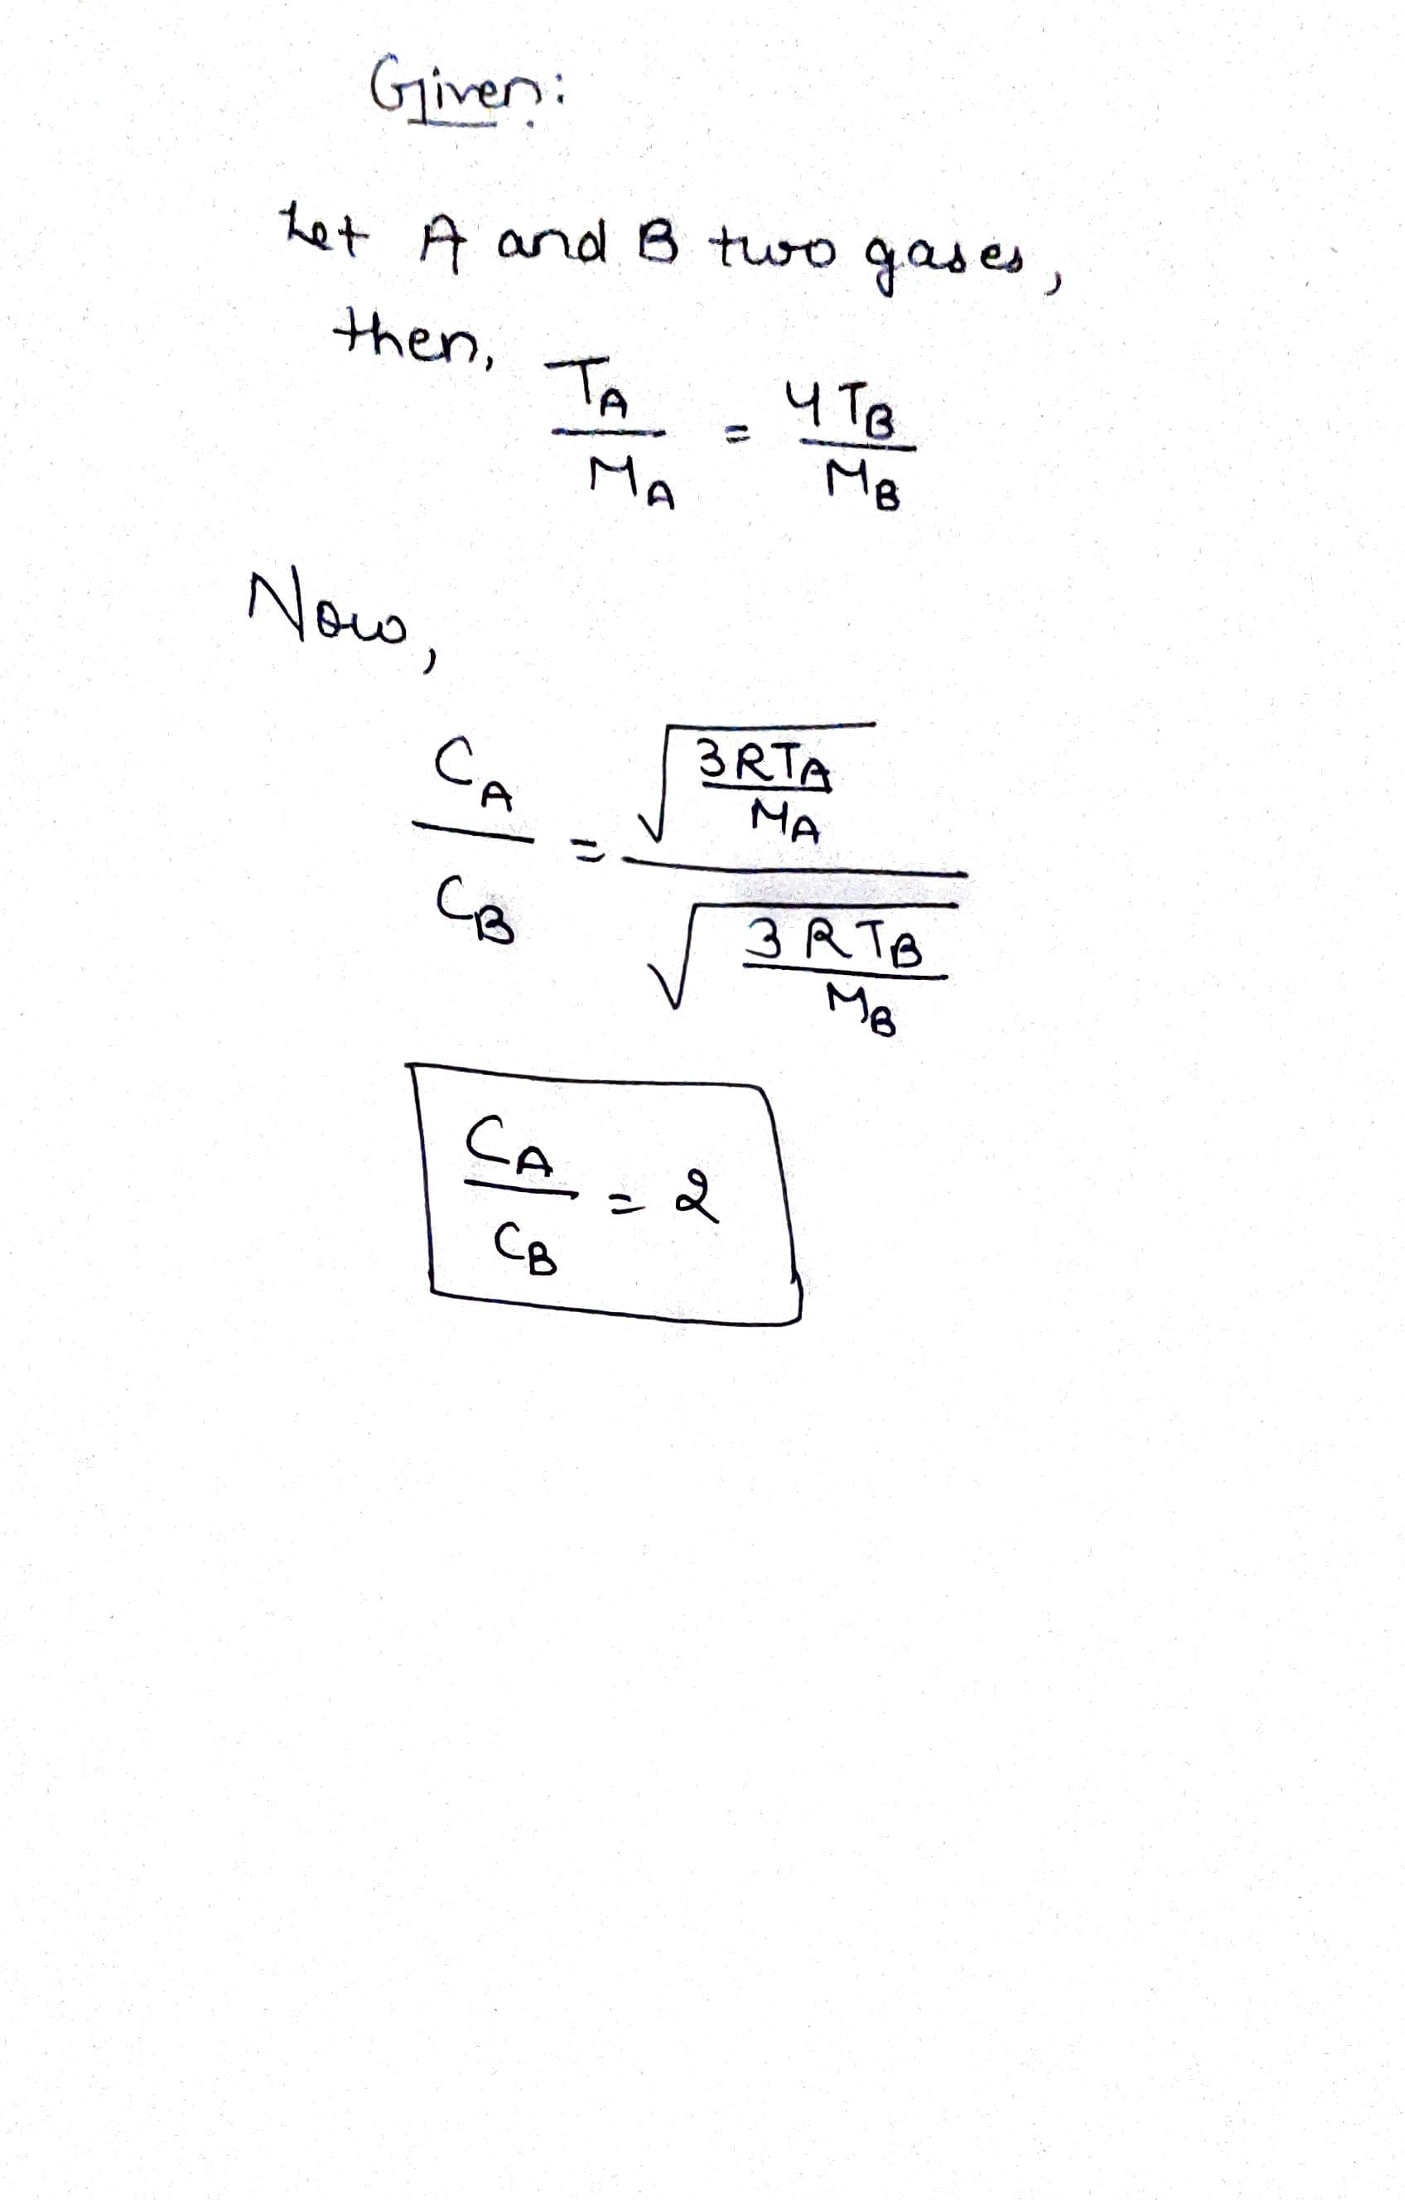 Given:
Let A and B two gases,
then,
TA/MA = 4TB/MB
Now,
CA/CB = √(3RTA/MA) / √(3RTB/MB)
CA/CB = 2